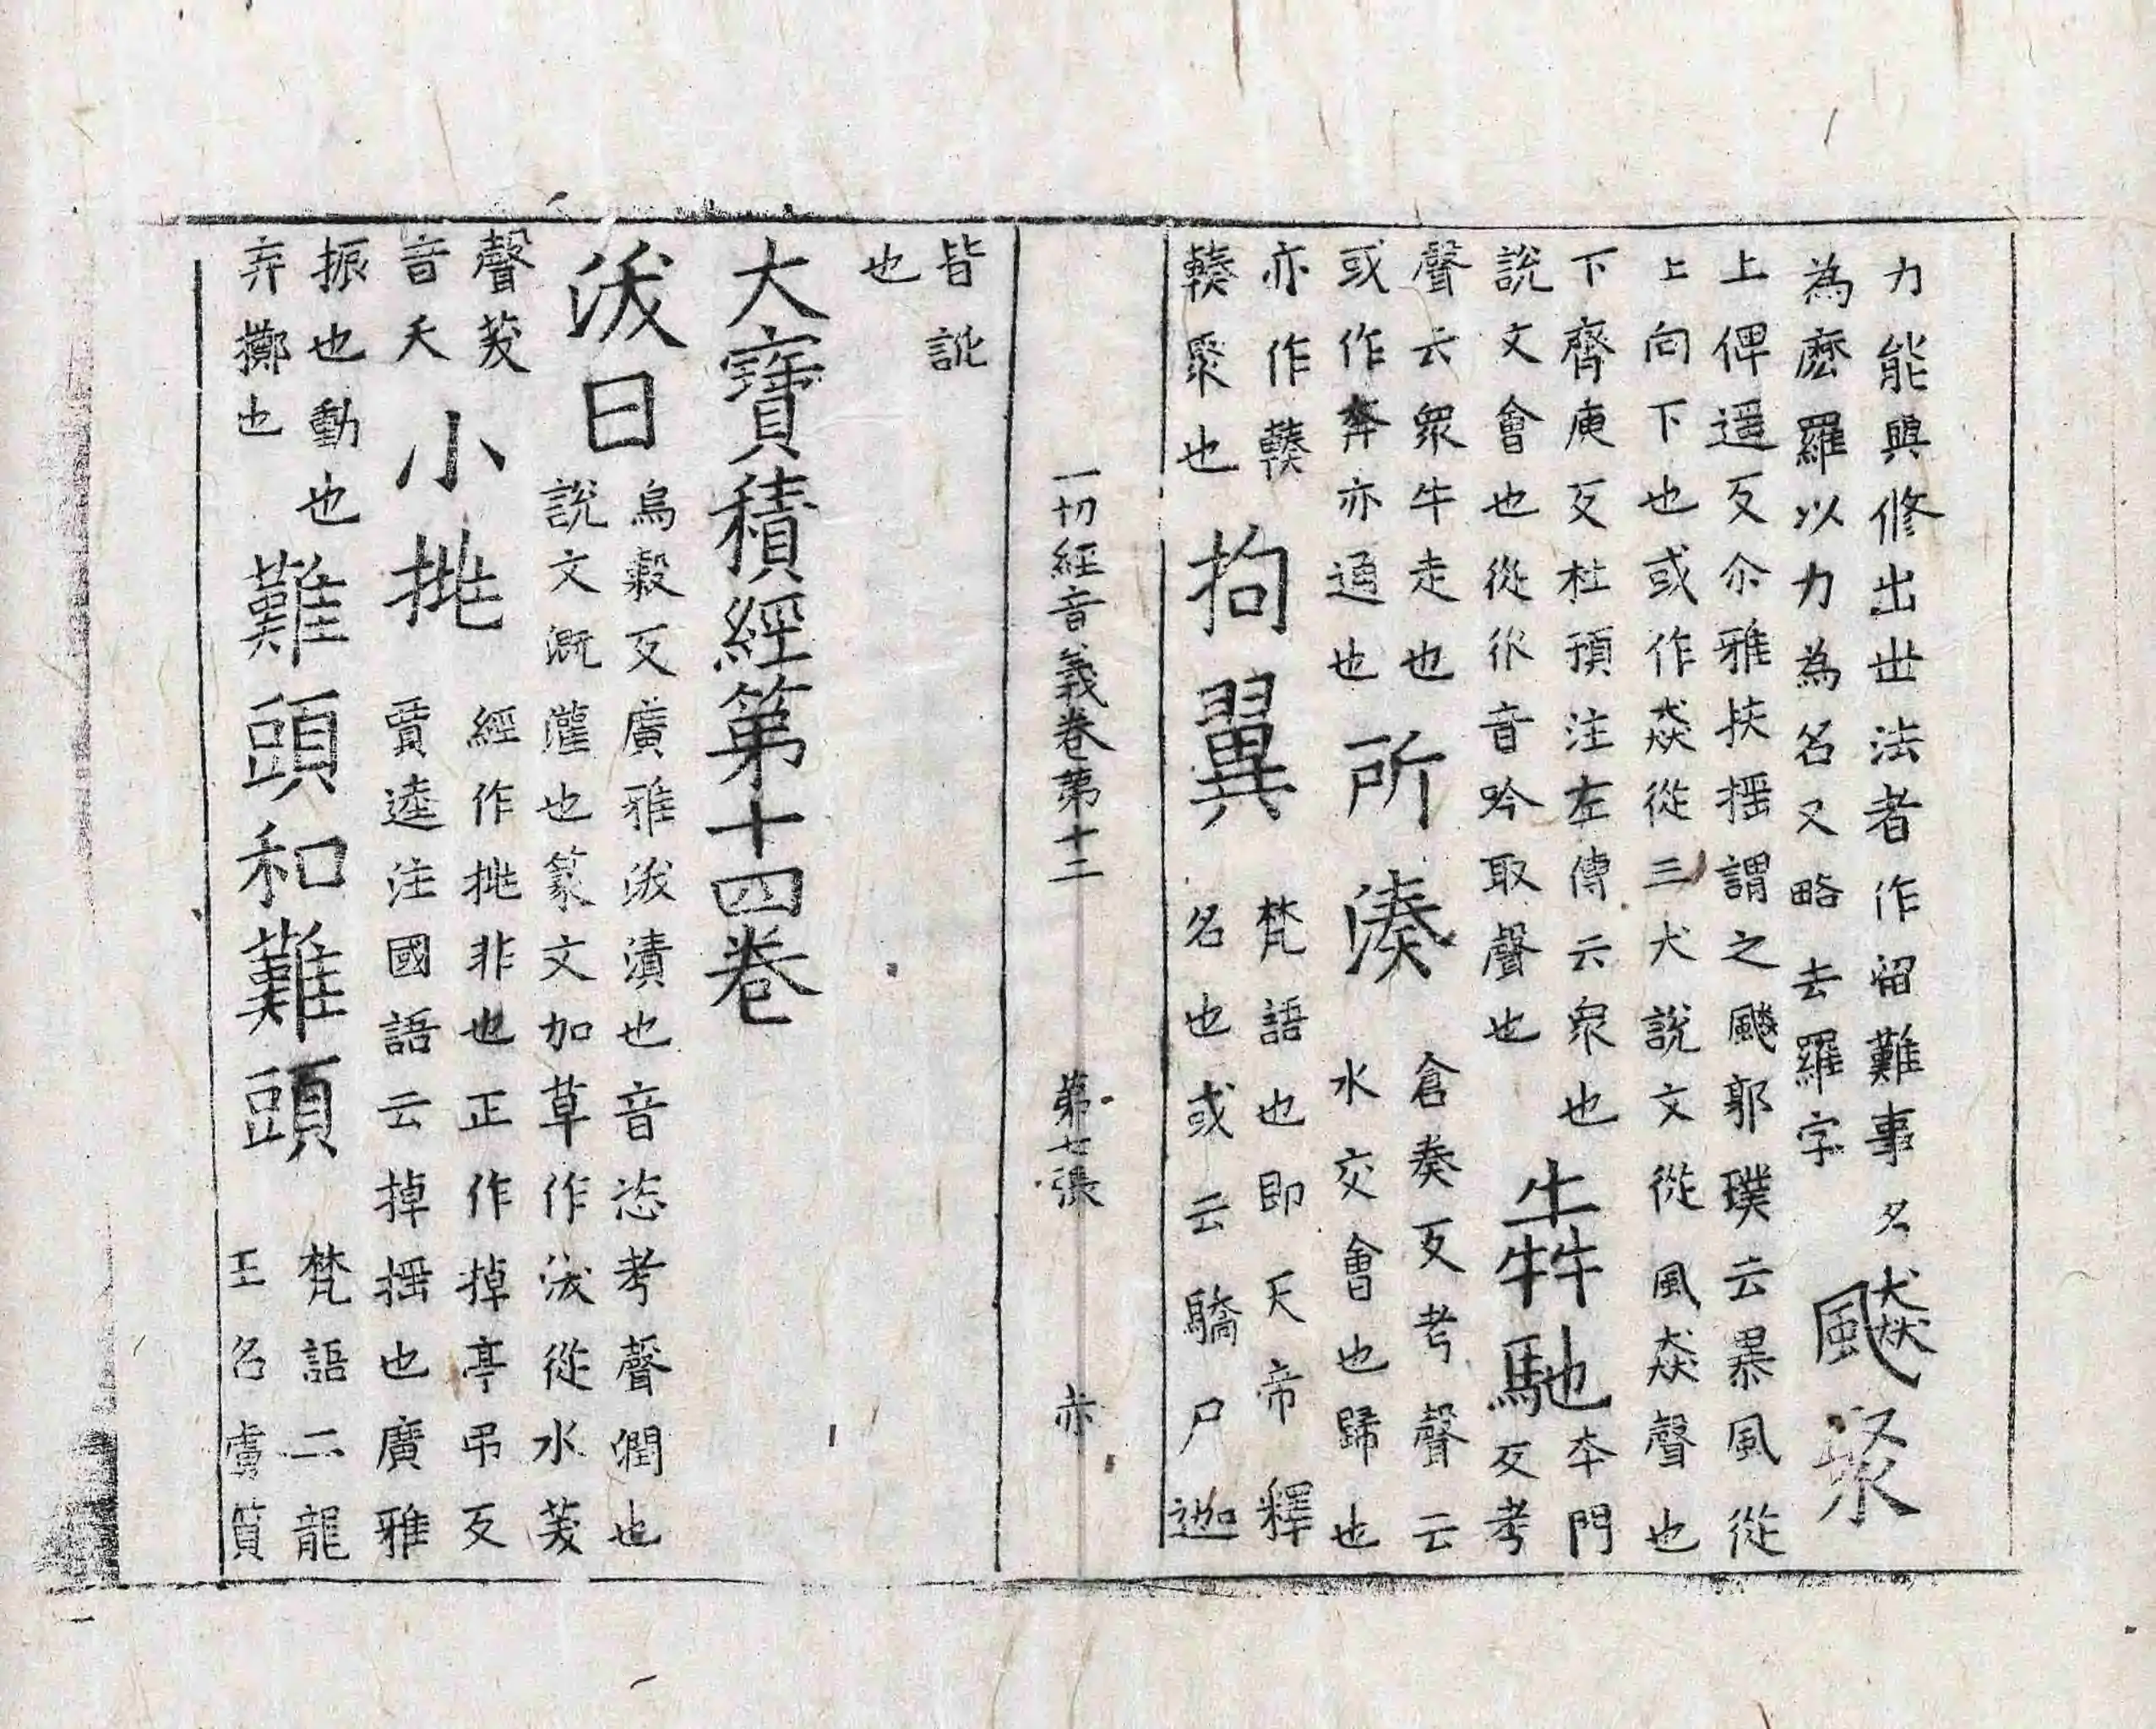 力能與修出世法者作留難事名
為麼羅以力為名又略去羅字
飇聚
上俾遥反尒雅扶揺謂之飇郭璞云暴風從
上向下也或作猋從三犬說文從風猋聲也
下齊庾反杜預注左傳云聚也
說文會也從㐺音吟取聲也
犇馳
本門
反考
聲云衆牛走也
或作奔亦通也
所湊
倉奏反考聲云
水交會也歸也
亦作輳
輳聚也
拘翼
梵語也即天帝釋
名也或云驕尸迦
一切經音義卷第十二 第七張 亦
皆訛
也
大寶積經第十四卷
沃曰
烏穀反廣雅沃漬也音恣考聲潤也
說文溉灌也篆文加草作沃從水芺
聲芺
音夭
小挑
經作挑非也正作掉亭吊反
賈逵注國語云掉揺也廣雅
振也動也
弃擲也
難頭和難頭
梵語二龍
王名虜質